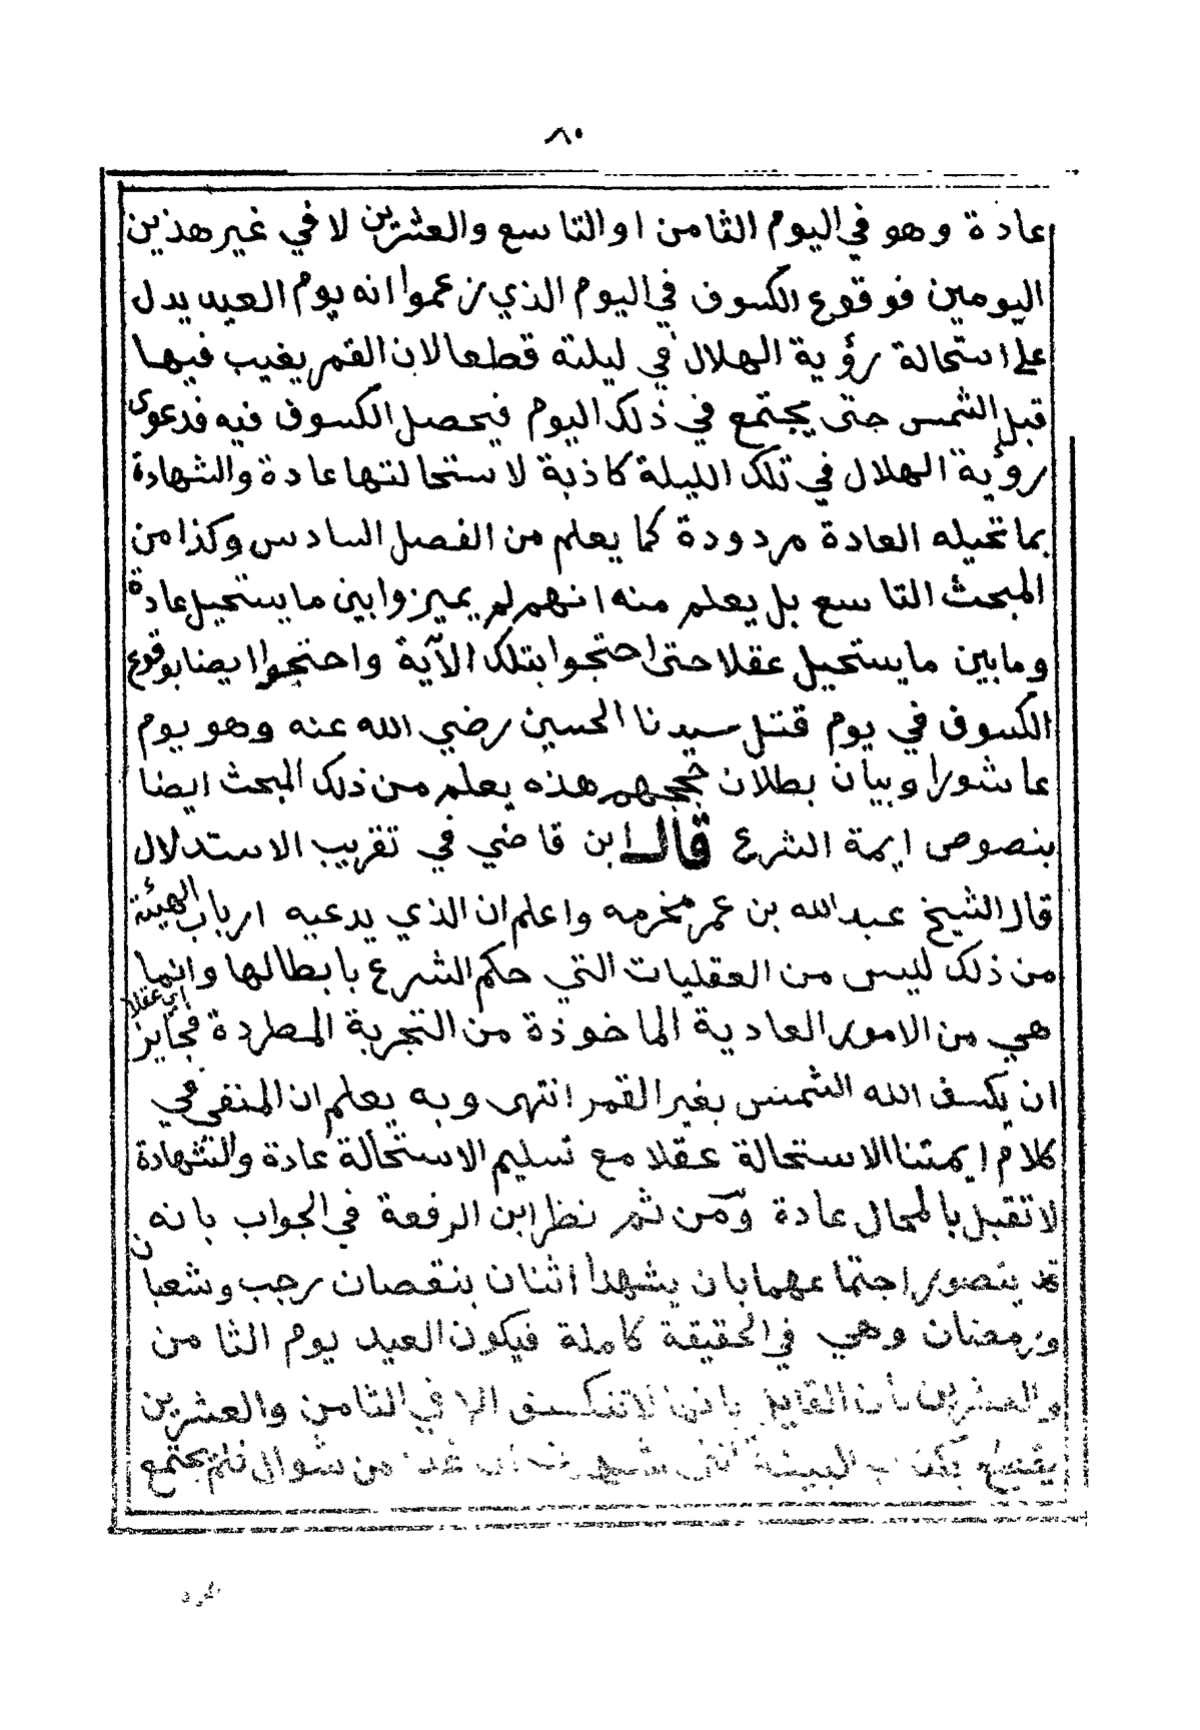 ٨٠
عادة وهو في اليوم الثامن او التاسع والعشرين لا في غير هذين
اليومين فوقوع الكسوف في اليوم الذي زعموا انه يوم العيد يدل
على استحالة رؤية الهلال في ليلته قطعا لان القمر يغيب فيها
قبل الشمس حتى يجتمع في ذلك اليوم فيحصل الكسوف فيه فدعوى
رؤية الهلال في تلك الليلة كاذبة لاستحالتها عادة والشهادة
بما تحيله العادة مردودة كما يعلم من الفصل السادس وكذا من
المبحث التاسع بل يعلم منه انهم لم يميزوا بين ما يستحيل عادة
وما بين ما يستحيل عقلا حتى احتجوا بتلك الآية واحتجوا ايضا بوقوع
الكسوف في يوم قتل سيدنا الحسين رضي الله عنه وهو يوم
عاشورا وبيان بطلان حججهم هذه يعلم من ذلك المبحث ايضا
بنصوص ايمة الشرع قال ابن قاضي في تقريب الاستدلال
قال الشيخ عبدالله بن عمر مخرمه واعلم ان الذي يدعيه ارباب الهيئة
من ذلك ليس من العقليات التي حكم الشرع بابطالها وانما
هي من الامور العادية الماخوذة من التجربة المطردة فجايز اي عقلا
ان يكسف الله الشمس بغير القمر انتهى وبه يعلم ان المنفي في
كلام ايمتنا الاستحالة عقلا مع تسليم الاستحالة عادة والشهادة
لا تقبل بالمحال عادة ومن ثم نظر ابن الرفعة في الجواب بانه
قد يتصور اجتماعهما بان يشهد اثنان بنقصان رجب وشعبان
ورمضان وهي في الحقيقة كاملة فيكون العيد يوم الثامن
والعشرين بأن القايل بانها لا تنكسف الا في الثامن والعشرين
يقطع بكذب البينة شوال فلم يجتمع